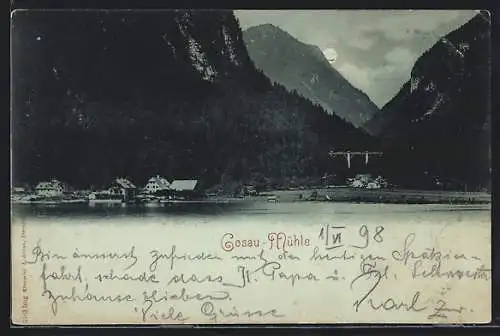 Gosau-Mühle
1/VI 98
Bin äusserst zufrieden mit der heutigen Spazier-
fahrt, schade dass H. Papa u. Frl. Schwester
zuhause blieben.
Viele Grüsse
Karl